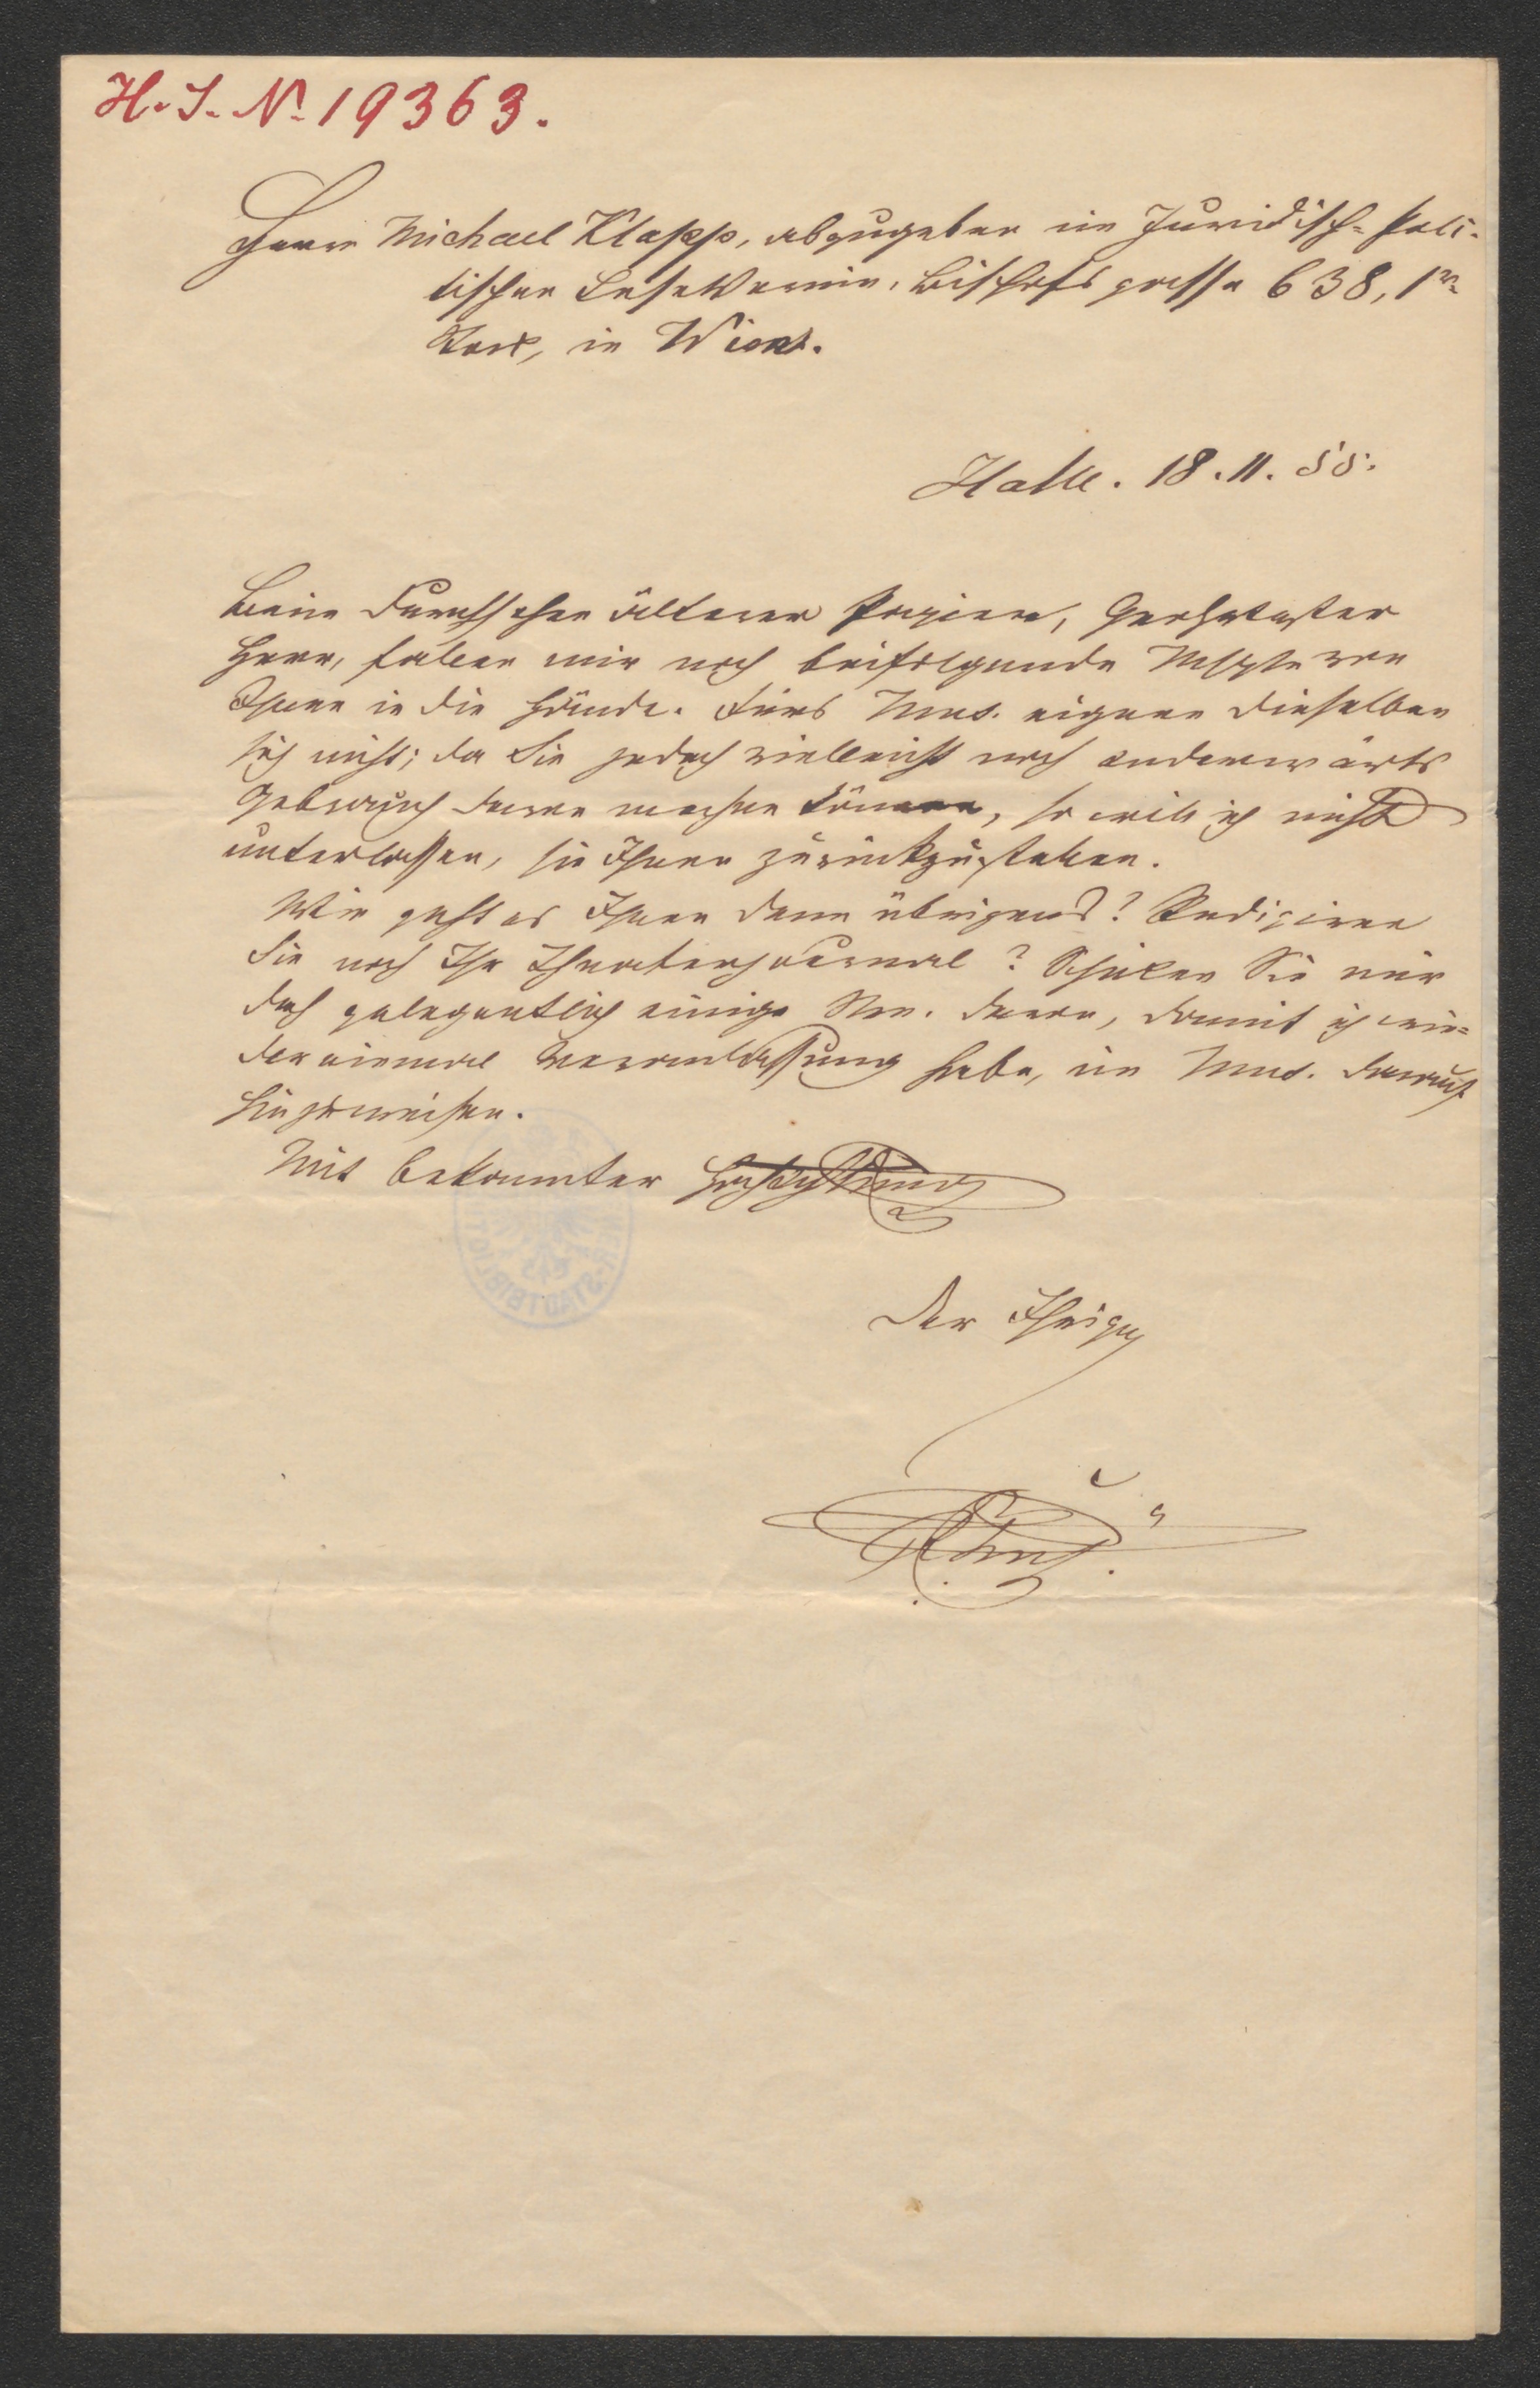 H. I. N. 19363.
Herrn Michael Klapp, abzugeben im Juridisch-Poli-
tischen Leseverein, Bischofsgasse 638, 1r
Stock, in Wien.
Halle. 18. 11. 55.
Beim Durchsehen älterer Papiere, Geehrtester
Herr, fallen mir noch beifolgende Mspte von
Ihnen in die Hände. Fürs Mus. eignen dieselben
sich nicht; da Sie jedoch vielleicht noch anderwärts
Gebrauch davon machen können, so will ich nicht
unterlassen, sie Ihnen zurückzustellen.
Wie geht es Ihnen denn übrigens? Redigiren
Sie noch Ihr Theaterjournal? Schicken Sie mir
doch gelegentlich einige Nrn. davon, damit ich wie=
der einmal Veranlassung habe, im Mus. darauf
hinzuweisen.
Mit bekannter Hochachtung
Der Ihrige